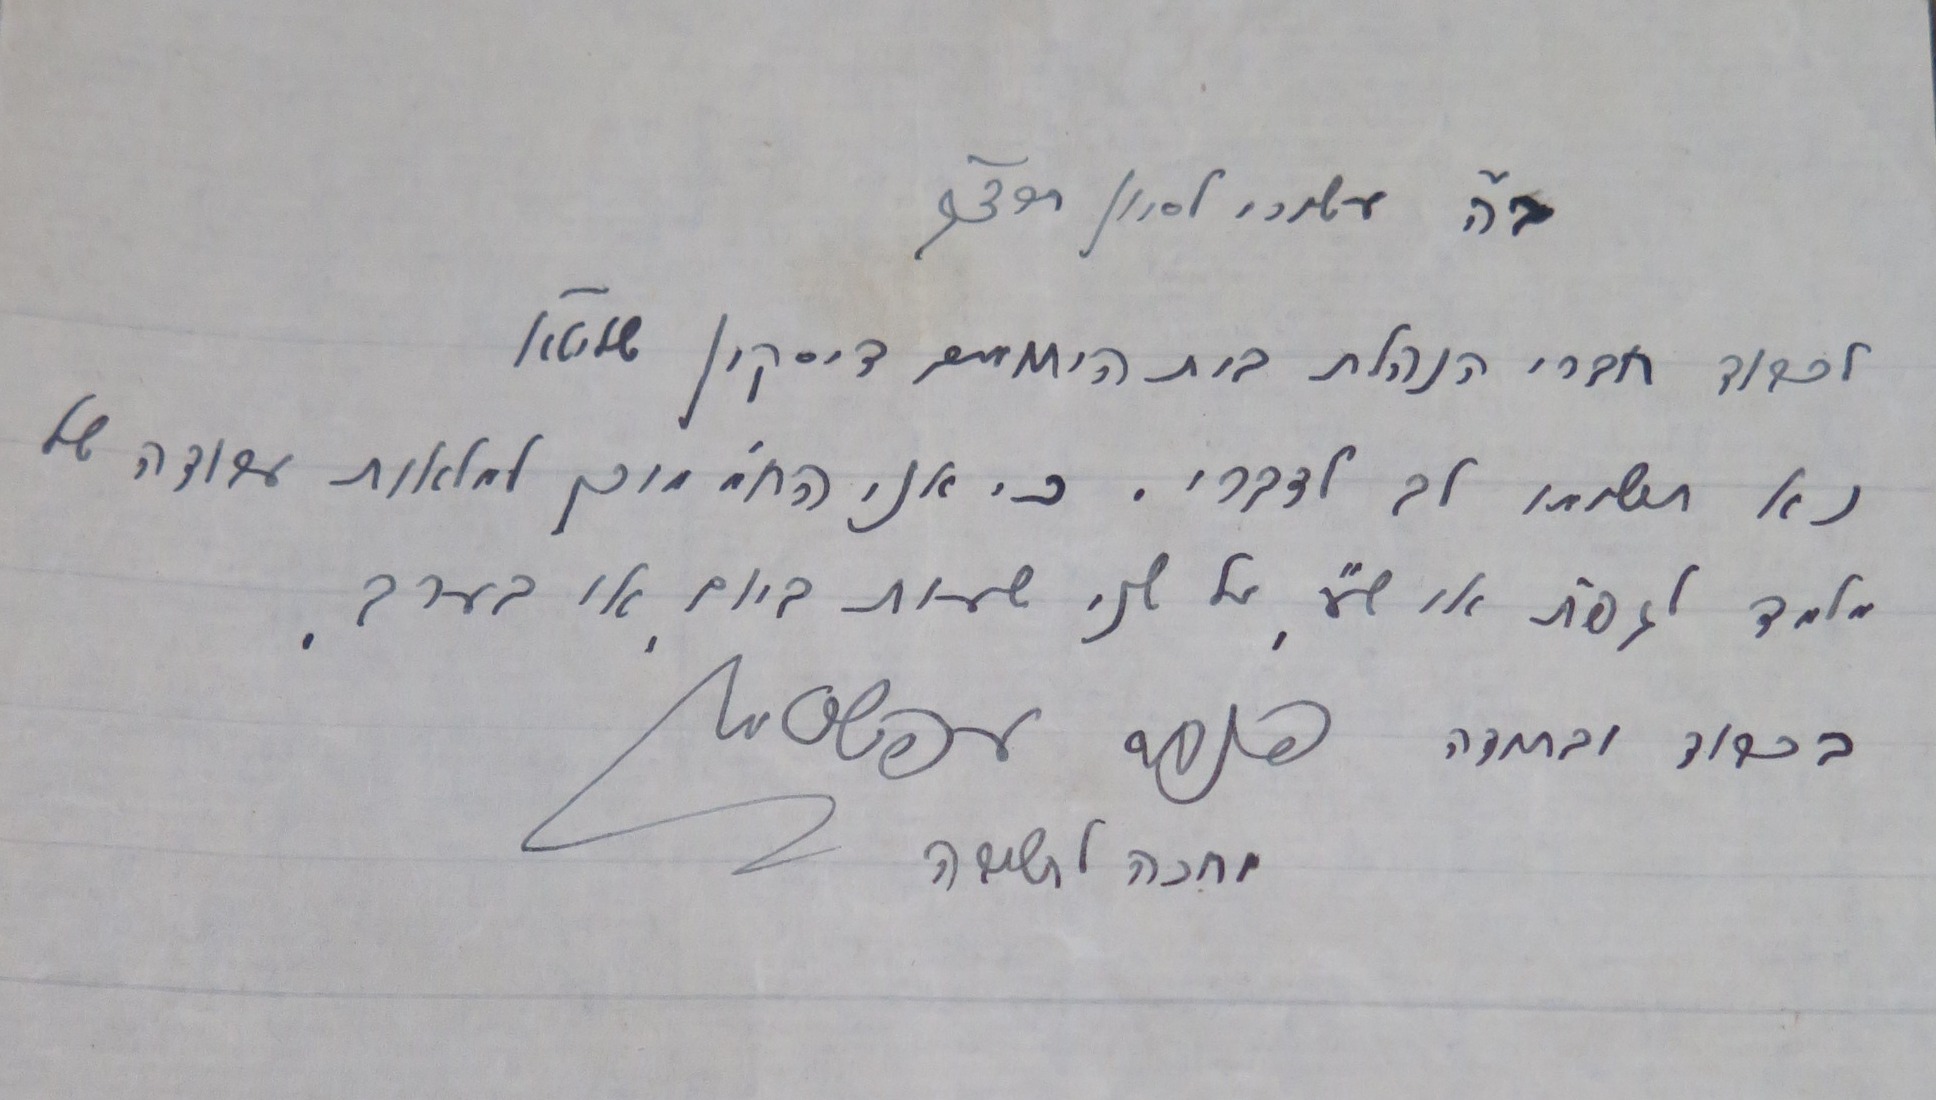 ב"ה עשתרי לסיון תרצ"ב
לכבוד חברי הנהלת בית היתומים דיסקין שליט"א
נא תשומו לב לדברי. כי אני הח"מ מוכן למלאות עבודה של
מלמד לגפ"ת או שו"ע, על שני שעות ביום, או בערב.
בכבוד ובתודה פנחס עפשטיין
מחכה לתשובה